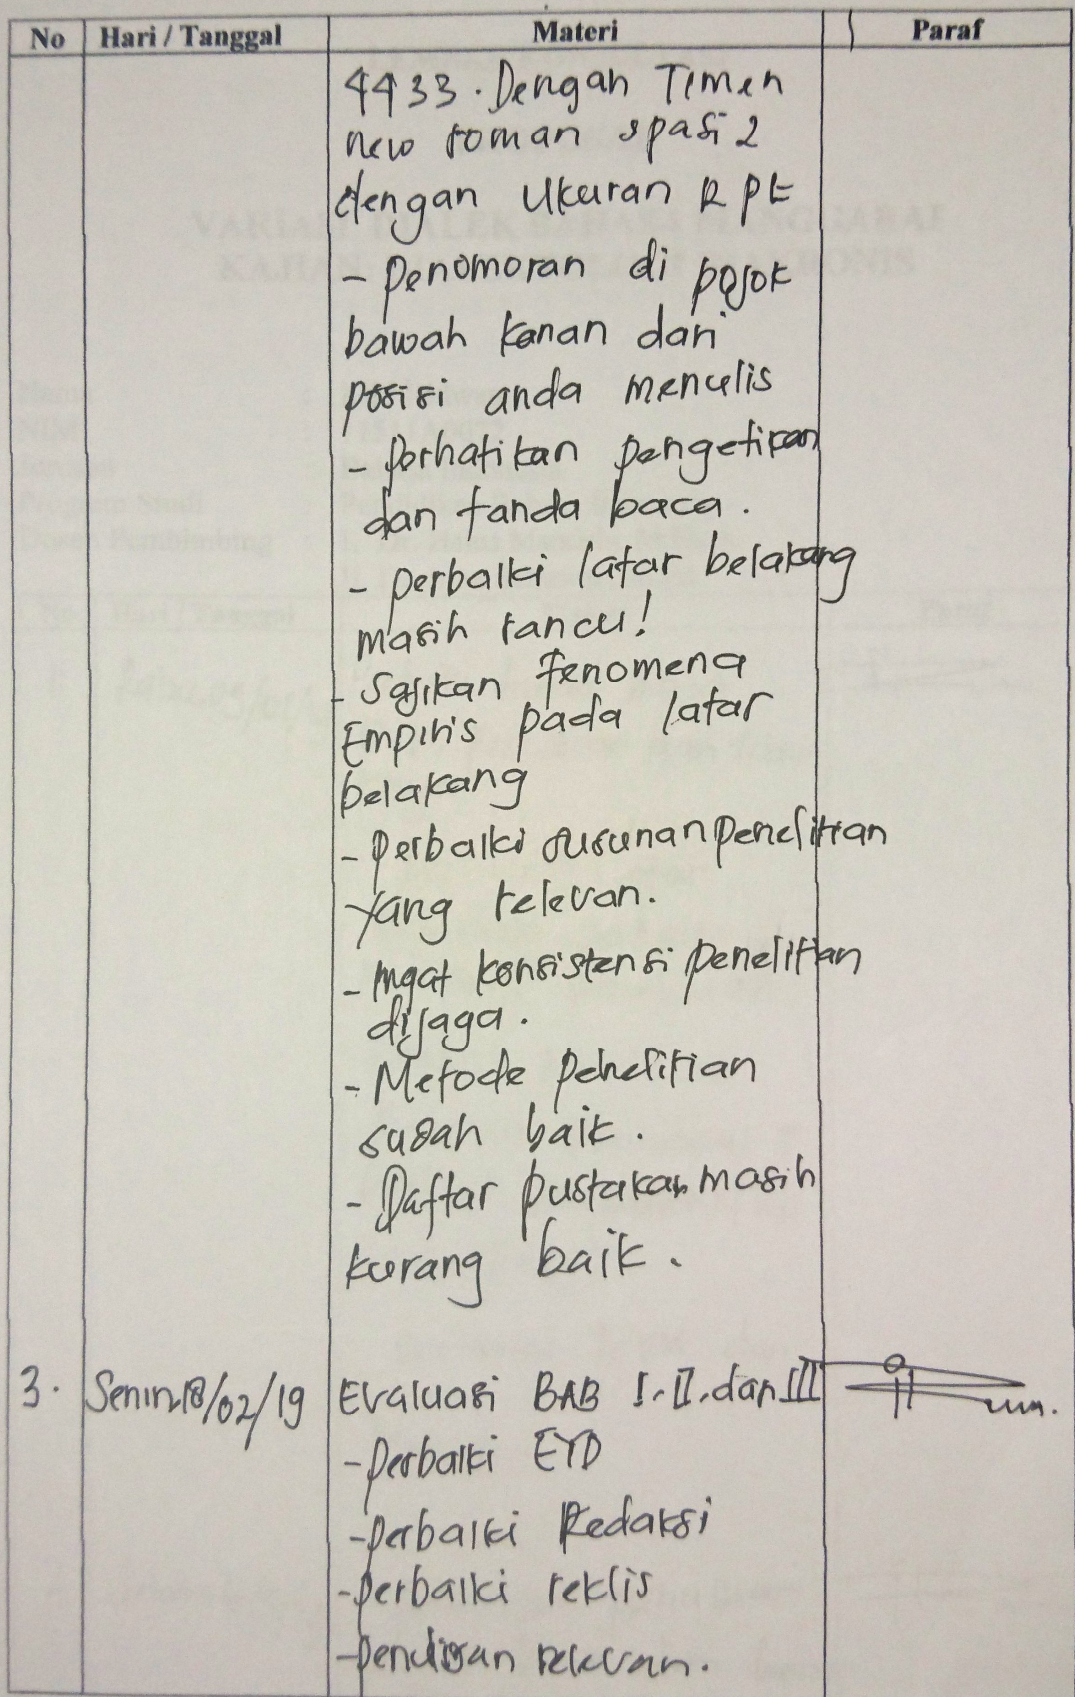 No Hari / Tanggal Materi Paraf
4433. Dengan Timen
new roman spasi 2
dengan Ukuran 12 pt
- penomoran di pojok
bawah kanan dari
posisi anda menulis
- perhatikan pengetikan
dan tanda baca.
- perbaiki latar belakang
masih rancu!
- Sajikan fenomena
Empiris pada latar
belakang
- perbaiki susunan penelitian
yang relevan.
- Ingat konsistensi penelitian
dijaga.
- Metode penelitian
sudah baik.
- Daftar pustakan masih
kurang baik.
3. Senin, 18/02/19 Evaluasi BAB I, II, dan III
- perbaiki EYD
- perbaiki Redaksi
- perbaiki
- relevan.